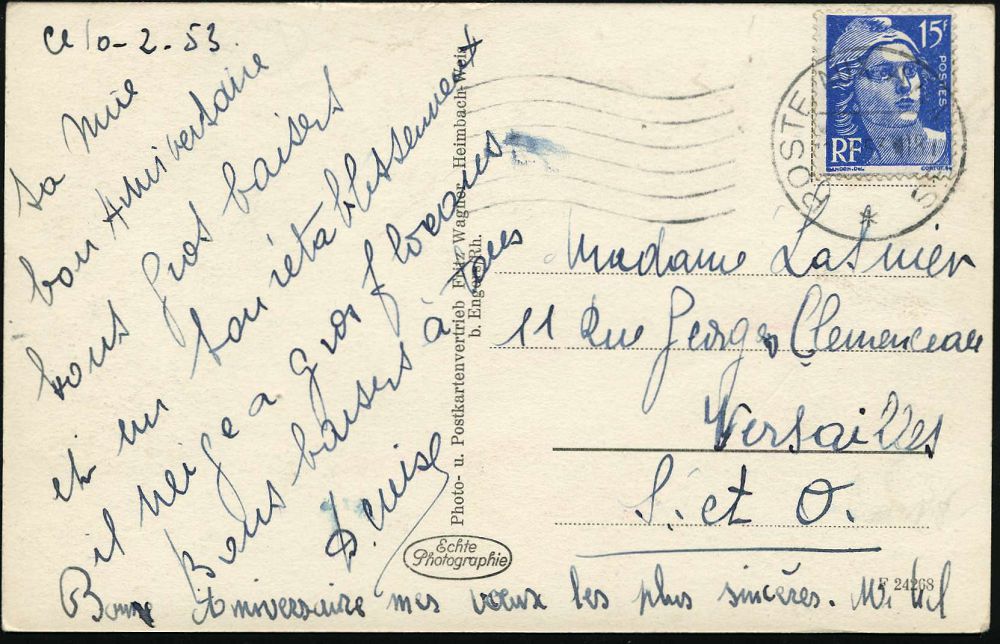 Ce 10-2-53.
Sa Mie
bon Anniversaire
tous gros baisers
et un bon rétablissement
il neige a gros flocons
Bons baisers à tous
Denise
Bonne Anniversaire mes voeux les plus sincères.
Photo- u. Postkartenvertrieb Fritz Wagner, Heimbach-Weis
b. Engers/Rh.
Echte
Photographie
15F
POSTES
RF
GANDON.DEL
POSTE
Madame Lasnier
11 Rue Georges Clemenceau
Versailles
S. et O.
F 24268